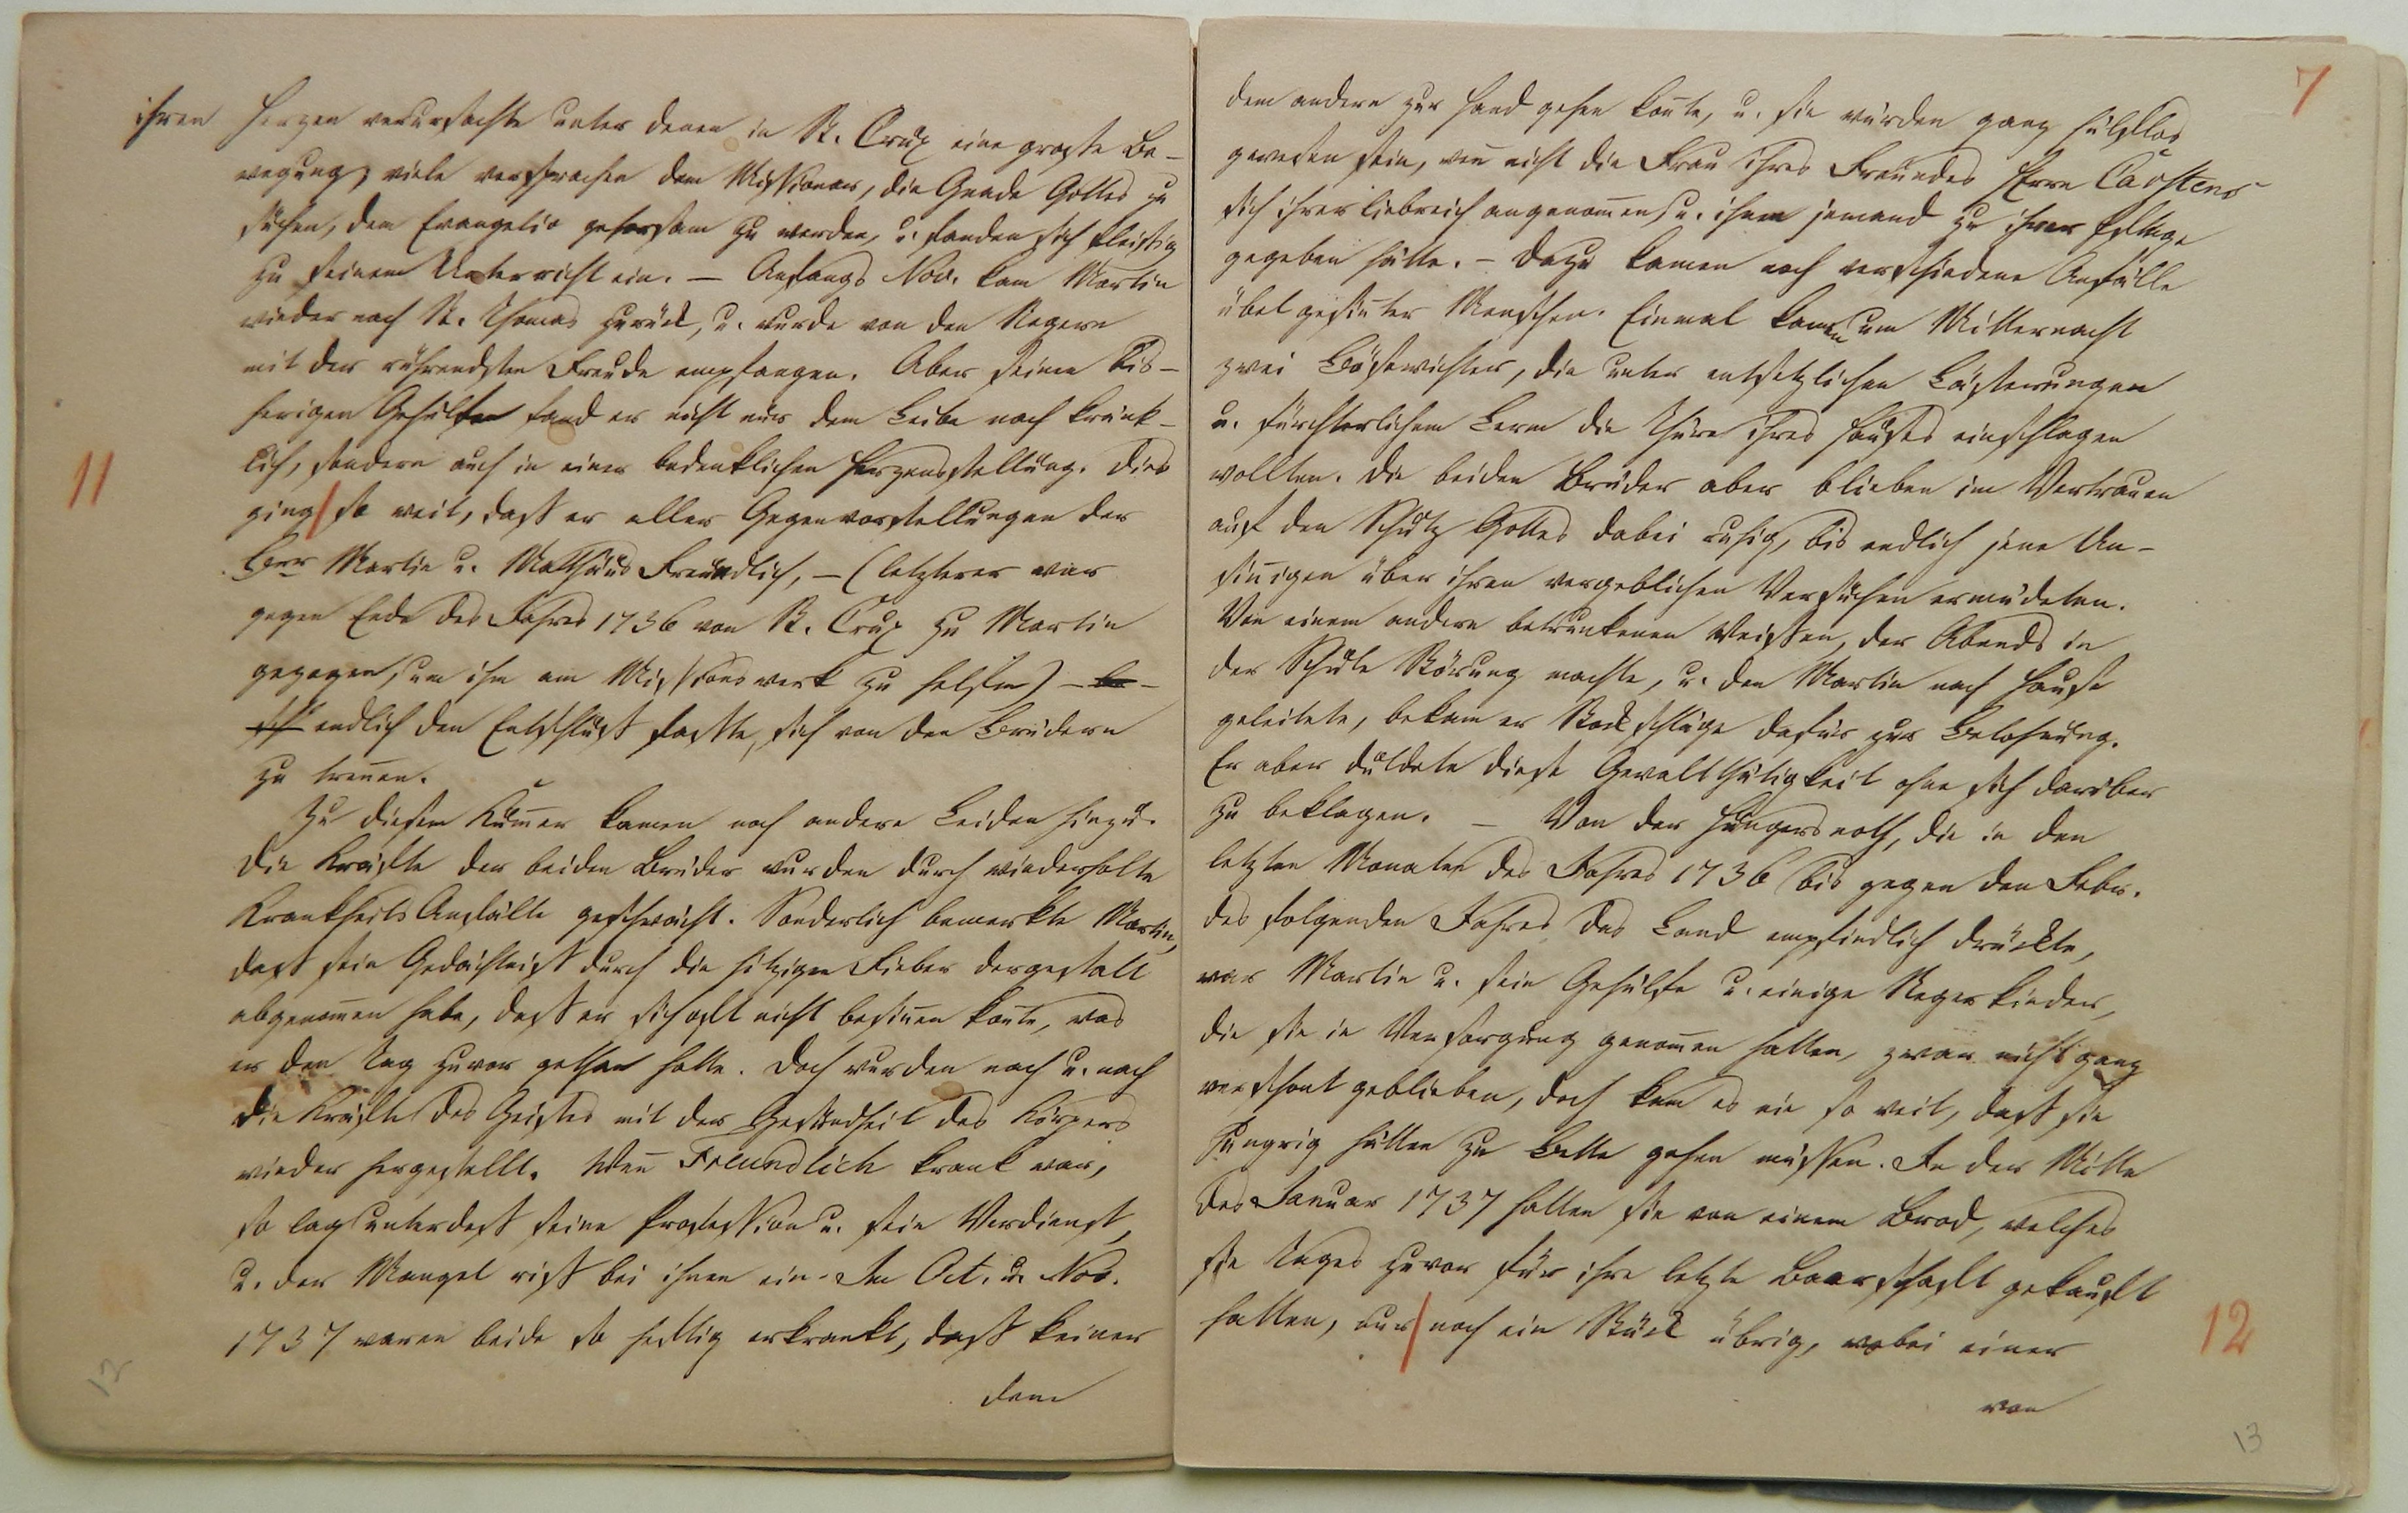 ihren Herzen verursachte unter denen in St. Crux eine große Be-
wegung, viele versprachen dem Missionar, die Gnade Gottes zu
suchen, dem Evangelio gehorsam zu werden, u. fanden sich fleißig
zu seinem Unterricht ein. — Anfangs Nov. kam Martin
wieder nach St. Thomas zurück, u. wurde von den Negern
mit der rührendsten Freude empfangen. Aber seinen bis-
herigen Gehülfen fand er nicht nur dem Leibe nach kränk-
lich, sondern auch in einer bedenklichen Herzensstellung. Dies
11
ging so weit, daß er aller Gegenvorstellungen der
Brr Martin u. Matthäus Freundlich, — (letzterer war
gegen Ende des Jahres 1736 von St. Crux zu Martin
gezogen, um ihm am Missionswerk zu helfen) —
endlich den Entschluß faßte, sich von den Brüdern
zu trennen.
Zu diesem Kum̄er kamen noch andere Leiden hinzu.
Die Kräfte der beiden Brüder wurden durch wiederholte
Krankheits Anfälle geschwächt. Sonderlich bemerkte Martin,
daß sein Gedächtniß durch die hitzigen Fieber dergestalt
abgenom̄en habe, daß er sich oft nicht besin̄en kon̄te, was
er den Tag zuvor gethan hatte. Doch wurden nach u. nach
die Kräfte des Geistes mit der Gesundheit des Körpers
wieder hergestellt. Wen̄ Freundlich krank war,
so lag unterdeß seine Profession u. sein Verdienst,
u. der Mangel riß bei ihnen ein. Im Oct. u. Nov.
1737 waren beide so heftig erkrankt, daß keiner
dem
12
7
dem andern zur Hand gehen kon̄te, u. sie würden ganz hülflos
gewesen sein, wen̄ nicht die Frau ihres Freundes Herrn Carstens
sich ihrer liebreich angenom̄en, u. ihnen jemand zu ihrer Pflege
gegeben hätte. — Dazu kamen noch verschiedene Anfälle
übel gesin̄ter Menschen. Einmal kamen um Mitternacht
zwei Bösewichter, die unter entsetzlichen Lästerungen
u. fürchterlichem Lerm die Thüre ihres Hauses einschlagen
wollten. Die beiden Brüder aber blieben im Vertrauen
auf den Schutz Gottes dabei ruhig, bis endlich jene Un-
sin̄igen über ihren vergeblichen Versuchen ermüdeten.
Von einem andern betrunkenen Weißen, der Abends in
der Schule Störung machte, u. den Martin nach Hause
geleitete, bekam er Stockschläge dafür zur Belohnung.
Er aber duldete diese Gewaltthätigkeit ohne sich darüber
zu beklagen. — Von der Hungersnoth, die in den
letzten Monaten des Jahres 1736 bis gegen den Febr.
des folgenden Jahres das Land empfindlich drückte,
war Martin u. sein Gehülfe u. einige Negerkinder,
die sie in Versorgung genom̄en hatten, zwar nicht ganz
verschont geblieben, doch kam es nie so weit, daß sie
hungrig hätten zu Bette gehen müssen. In der Mitte
des Januar 1737 hatten sie von einem Brod, welches
sie Tages zuvor für ihre letzte Baarschaft gekauft
hatten, nur noch ein Stück übrig, wobei einer
12
von
13